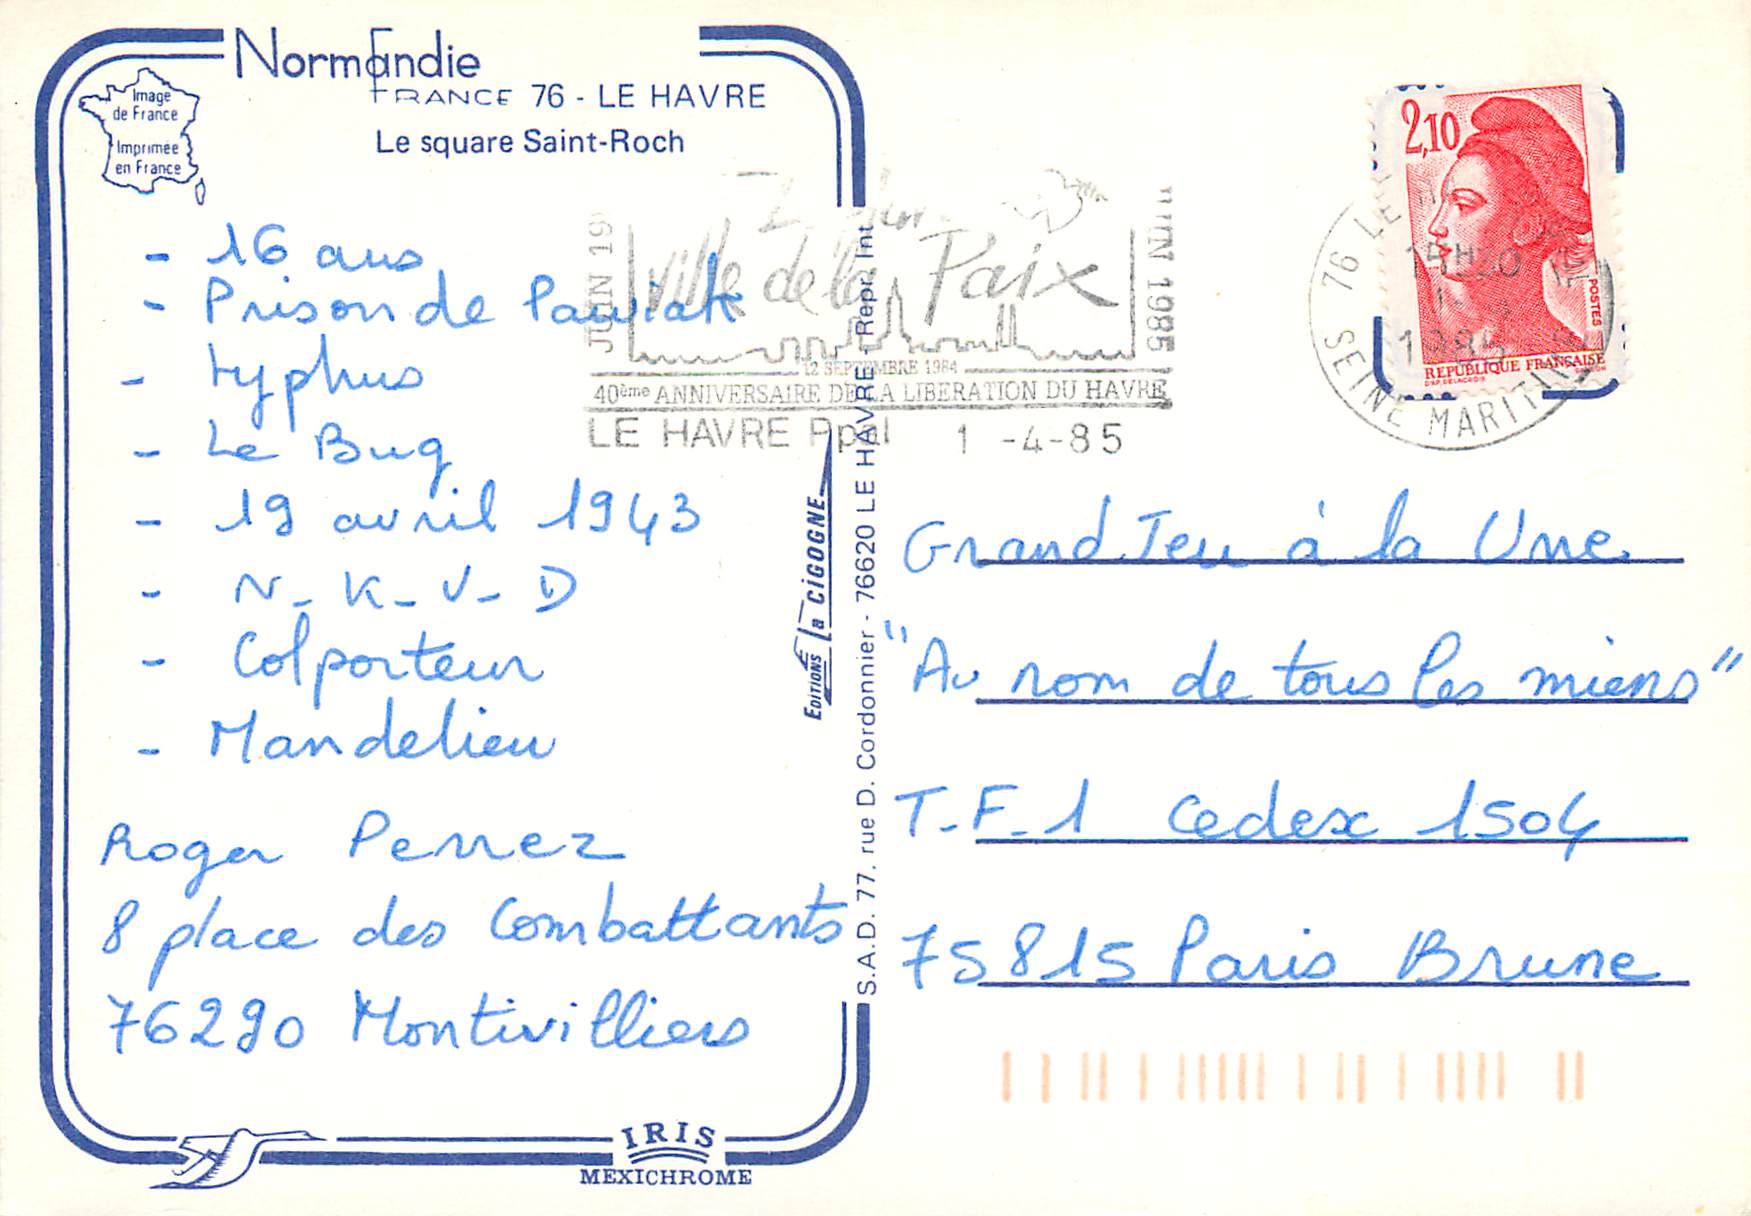 Normandie
FRANCE 76 - LE HAVRE
Le square Saint-Roch
Image
de France
Imprimée
en France
- 16 ans
- Prison de Pawiak
- typhus
- Le Bug
- 19 avril 1943
- N-K-V-D
- Colporteur
- Mandelieu
Roger Perrez
8 place des Combattants
76290 Montivilliers
IRIS
MEXICHROME
EDITIONS la CIGOGNE
S.A.D. 77. rue D. Cordonnier - 76620 LE HAVRE - Repr. Int.
JUIN 19
Ville de la Paix
JUIN 1985
12 SEPTEMBRE 1984
40ème ANNIVERSAIRE DE LA LIBERATION DU HAVRE
LE HAVRE Ppal 1 -4-85
2,10
POSTES
REPUBLIQUE FRANÇAISE
D'AP. DELACROIX
GANDON
76 LE HA
15H30
1985
SEINE MARITIME
Grand Jeu à la Une
"Au nom de tous les miens"
T-F-1 Cedex 1504
75815 Paris Brune